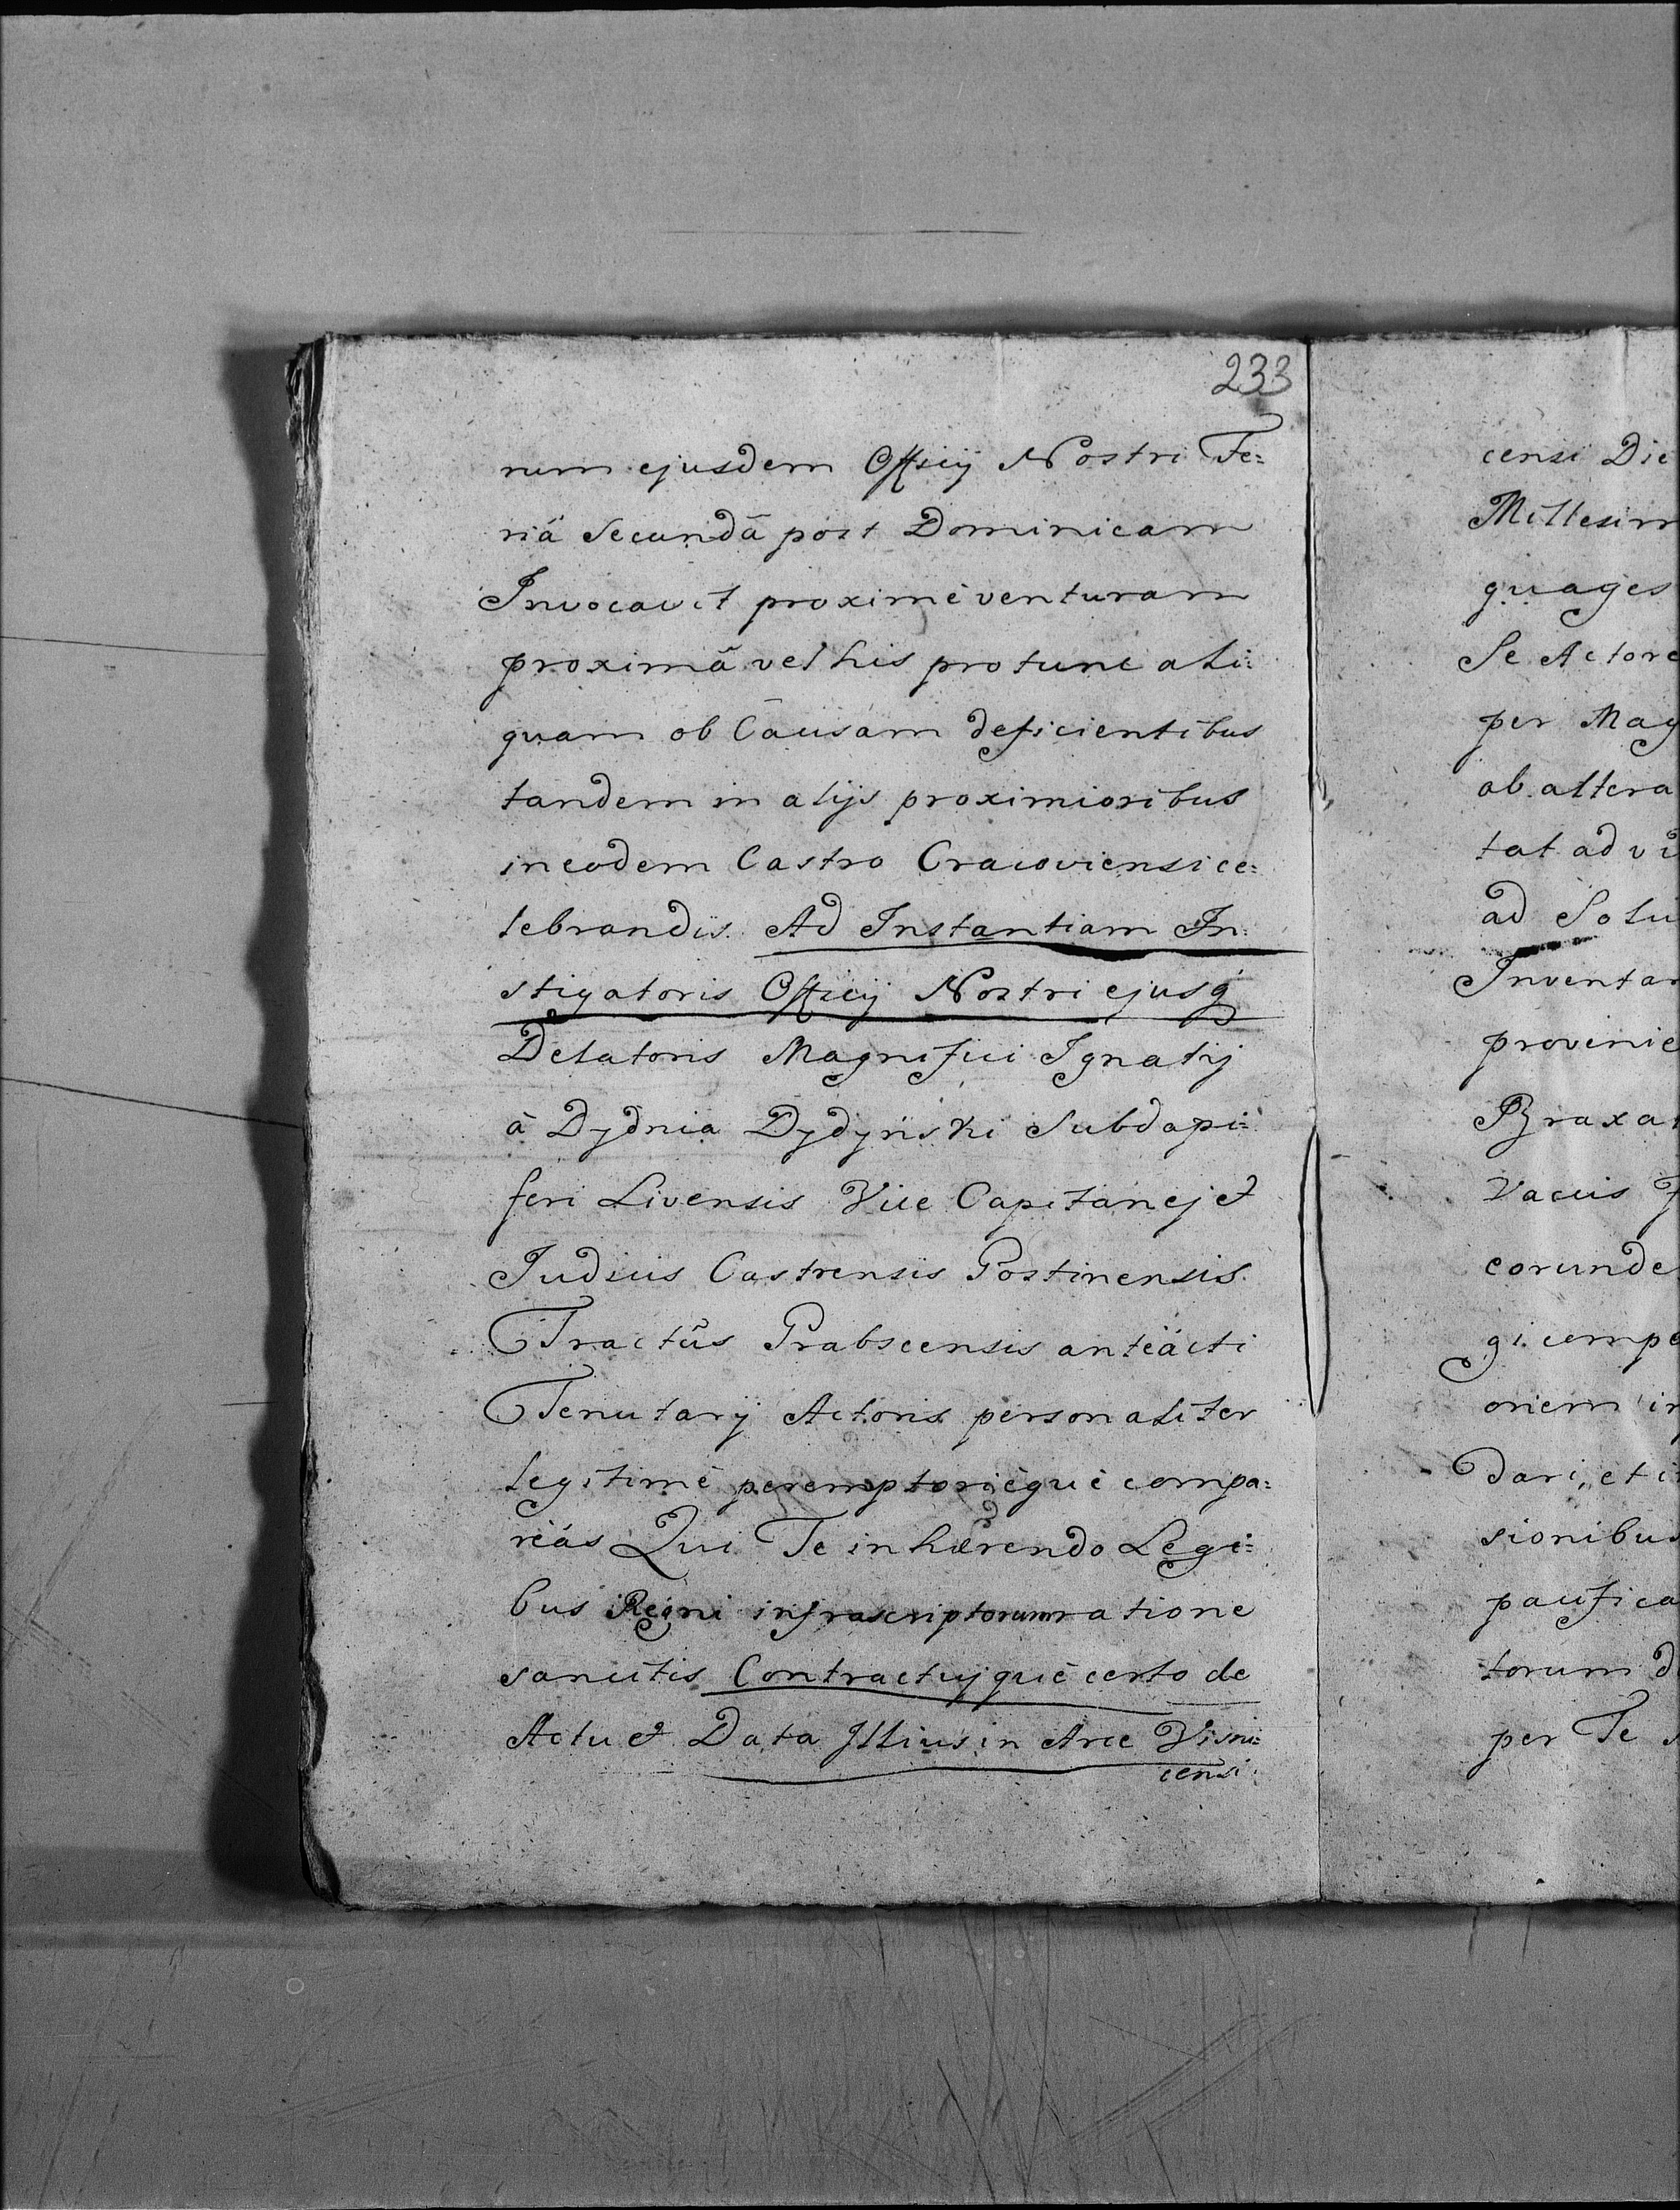 233
rum ejusdem Officij Nostri Fe:
riâ Secundâ post Dominicam
Invocavit proximè venturam
proximâ vel his protunc ali:
quam ob Causam deficientibus
tandem in alijs proximioribus
ineodem Castro Cracoviensi ce:
lebrandis. Ad Instantiam In:
stigatoris Officij Nostri ejusq
Delatoris Magnifici Ignatij
à Dydnia Dydyński Subdapi:
feri Livensis Vice Capitanej et
Judicis Castrensis Gostinensis
Tractûs Grabscensis anteàcti
Tenutarij Actoris personaliter
legitimè peremptorièquè compa:
reàs Qui Te inhærendo Legi:
bus Regni infrascriptorum ratione
sancitis Contractujquè certo de
Actu et Data Illius in Arce Visni:
censi
censi Die
Millesim
quages
Se Actore
per Mag
ob altera
tat ad vi
ad Solu
Inventar
provenie
Braxa
Vacuis
corunde
gi compe
oriem in
dari, et i
sionibus
pacifica
torum d
per Te s